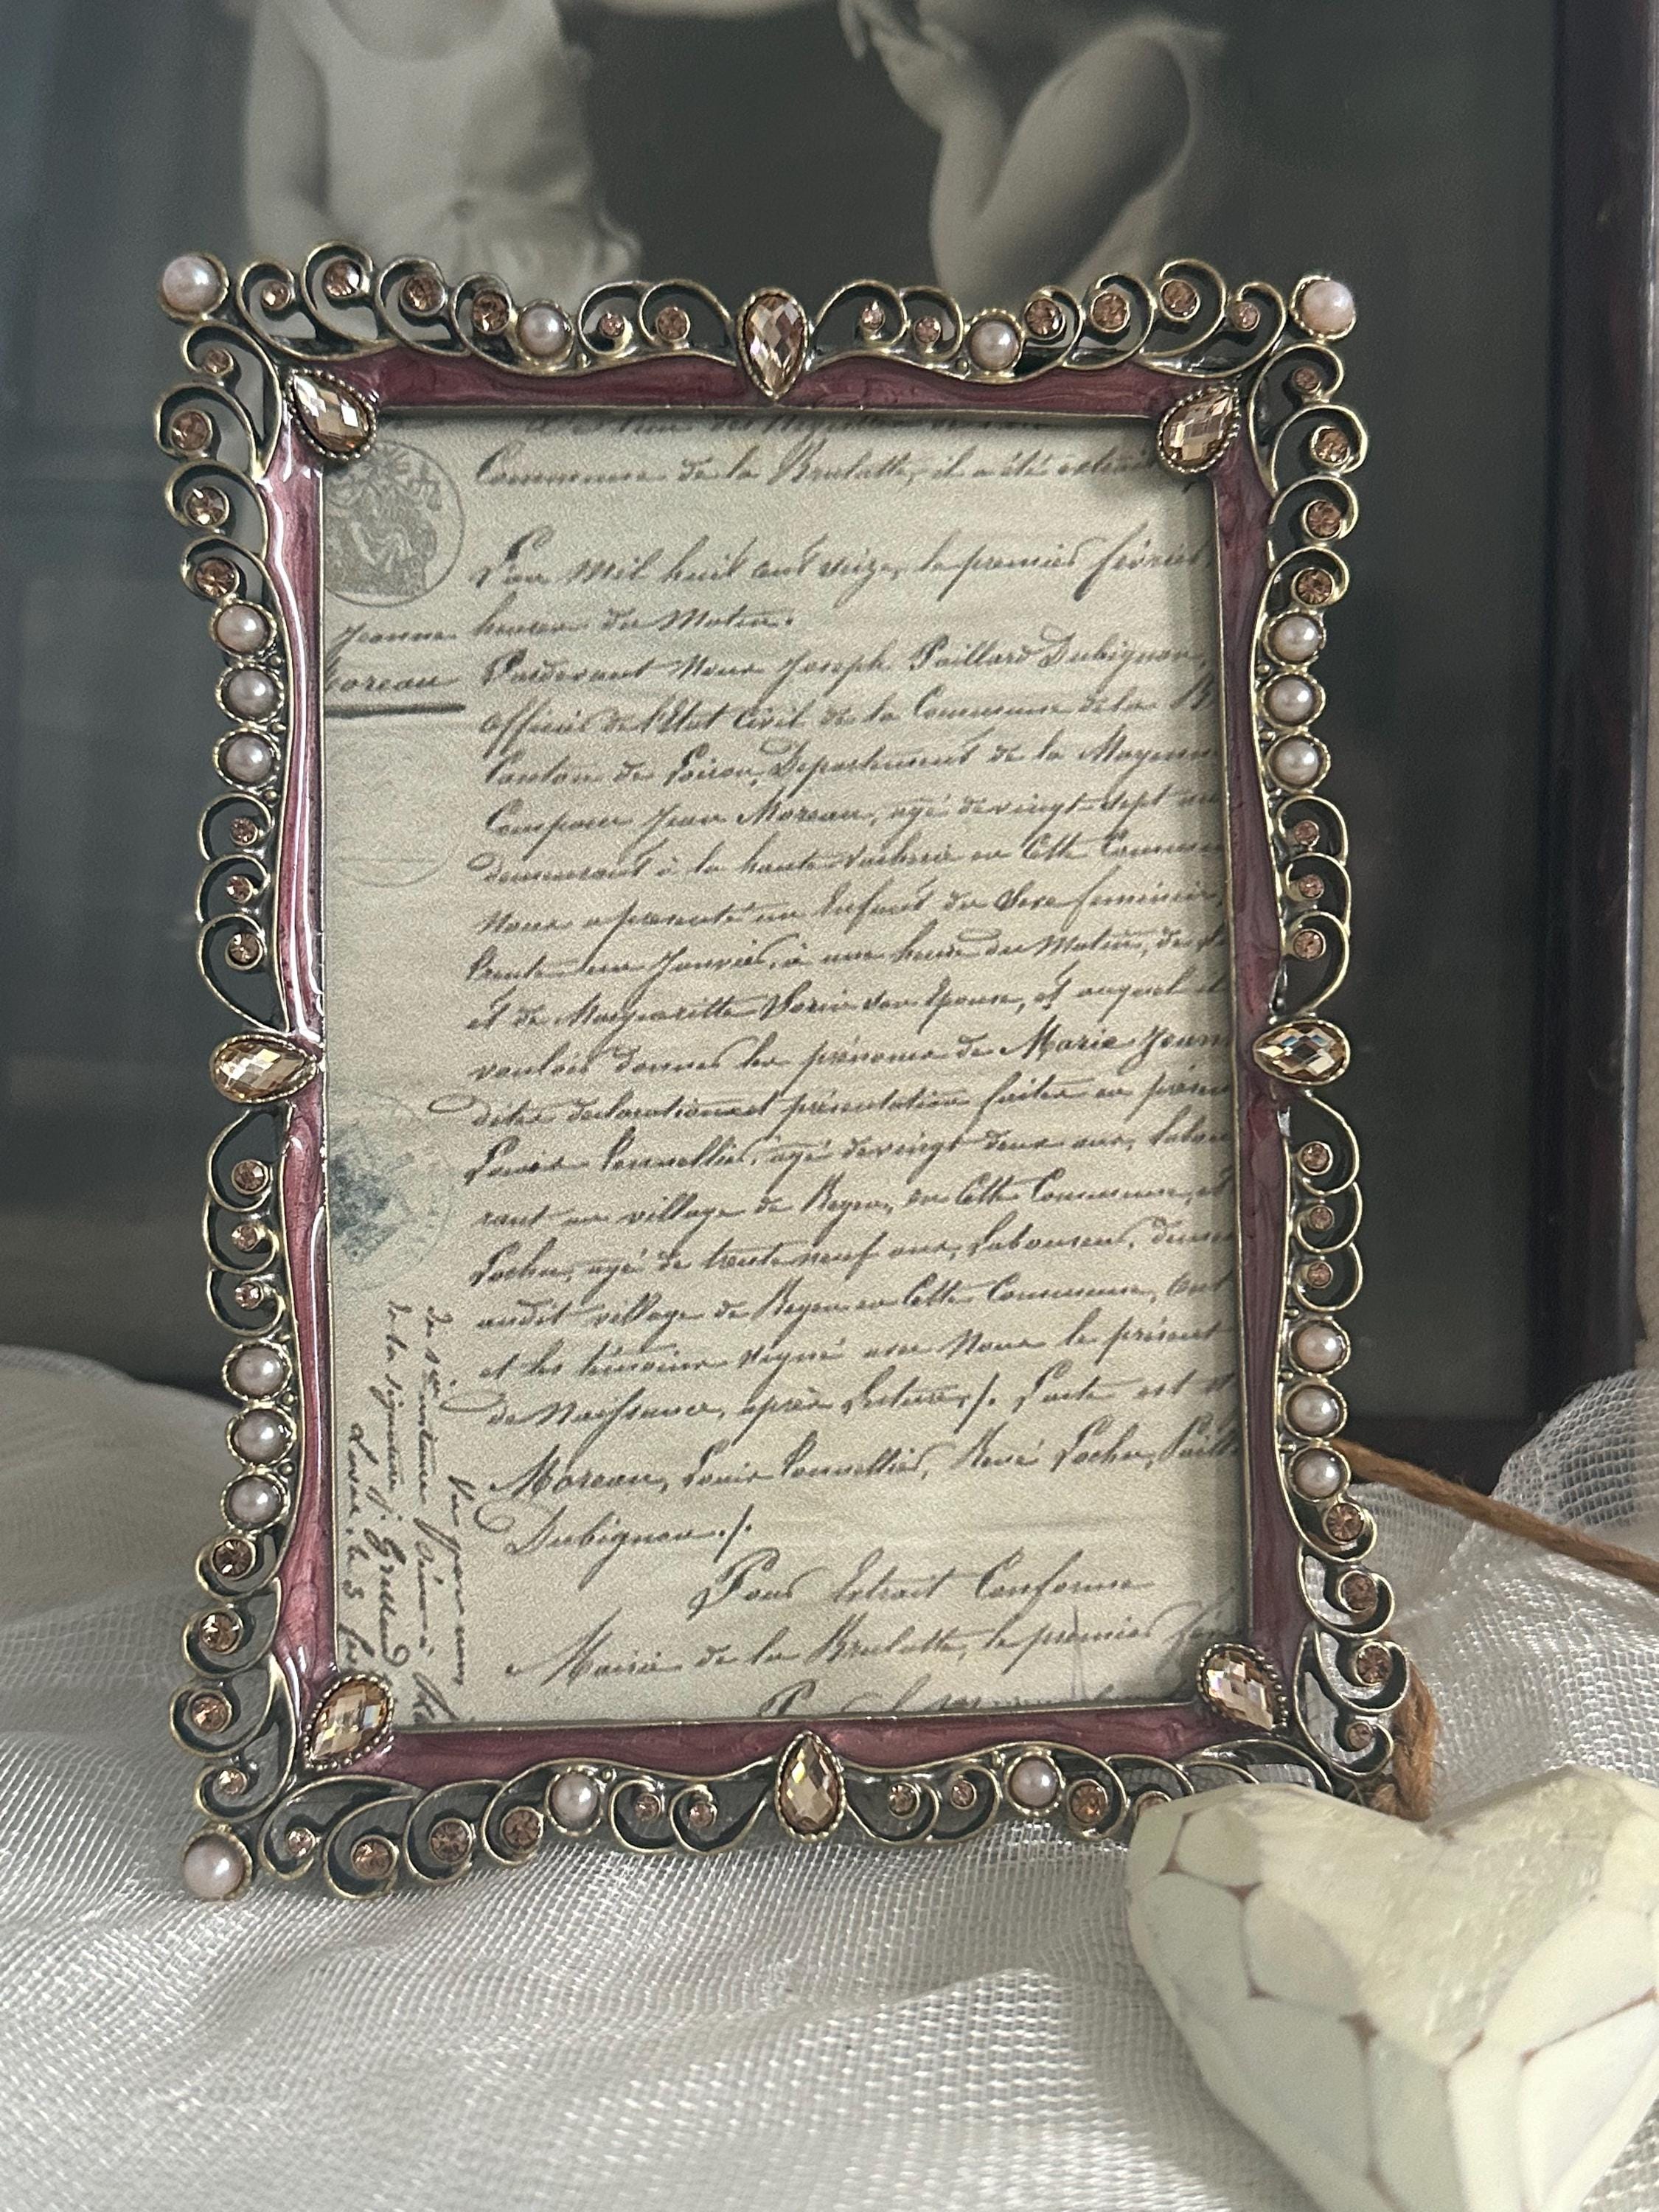 Commune de la Brulatte, il a été extrait
L'an Mil huit cent seize, le premier février
heures du Matin.
Jeanne
Moreau
Pardevant Nous Joseph Paillard Dubignon,
officier de l'Etat Civil de la Commune de la B
Canton de Loiron, Departement de la Mayenne
Comparu Jean Moreau, agé de vingt-sept ans
demeurant à la haute in Cette Commune
Nous a presenté un Enfant du Sexe feminin,
trente un Janvier, à une heure du Matin, de
et de Margueritte son Epouse, et auquel il
vouloir donner les prénoms de Marie Jeanne
dites declaration et présentation faites en présen
Louis agé de vingt deux ans, labou
rant au village de en Cette Commune, et
agé de trente neuf ans, Laboureur, deme
audit village de en Cette Commune, ont
et les témoins signé avec Nous le présent
de Naissance, après Lecture ./. L'acte est s
Moreau, Louis René Paill
Dubignon ./.
Pour Extrait Conforme
Mairie de la Brulatte, le premier fév
de la signature
Laval, le 3 fév